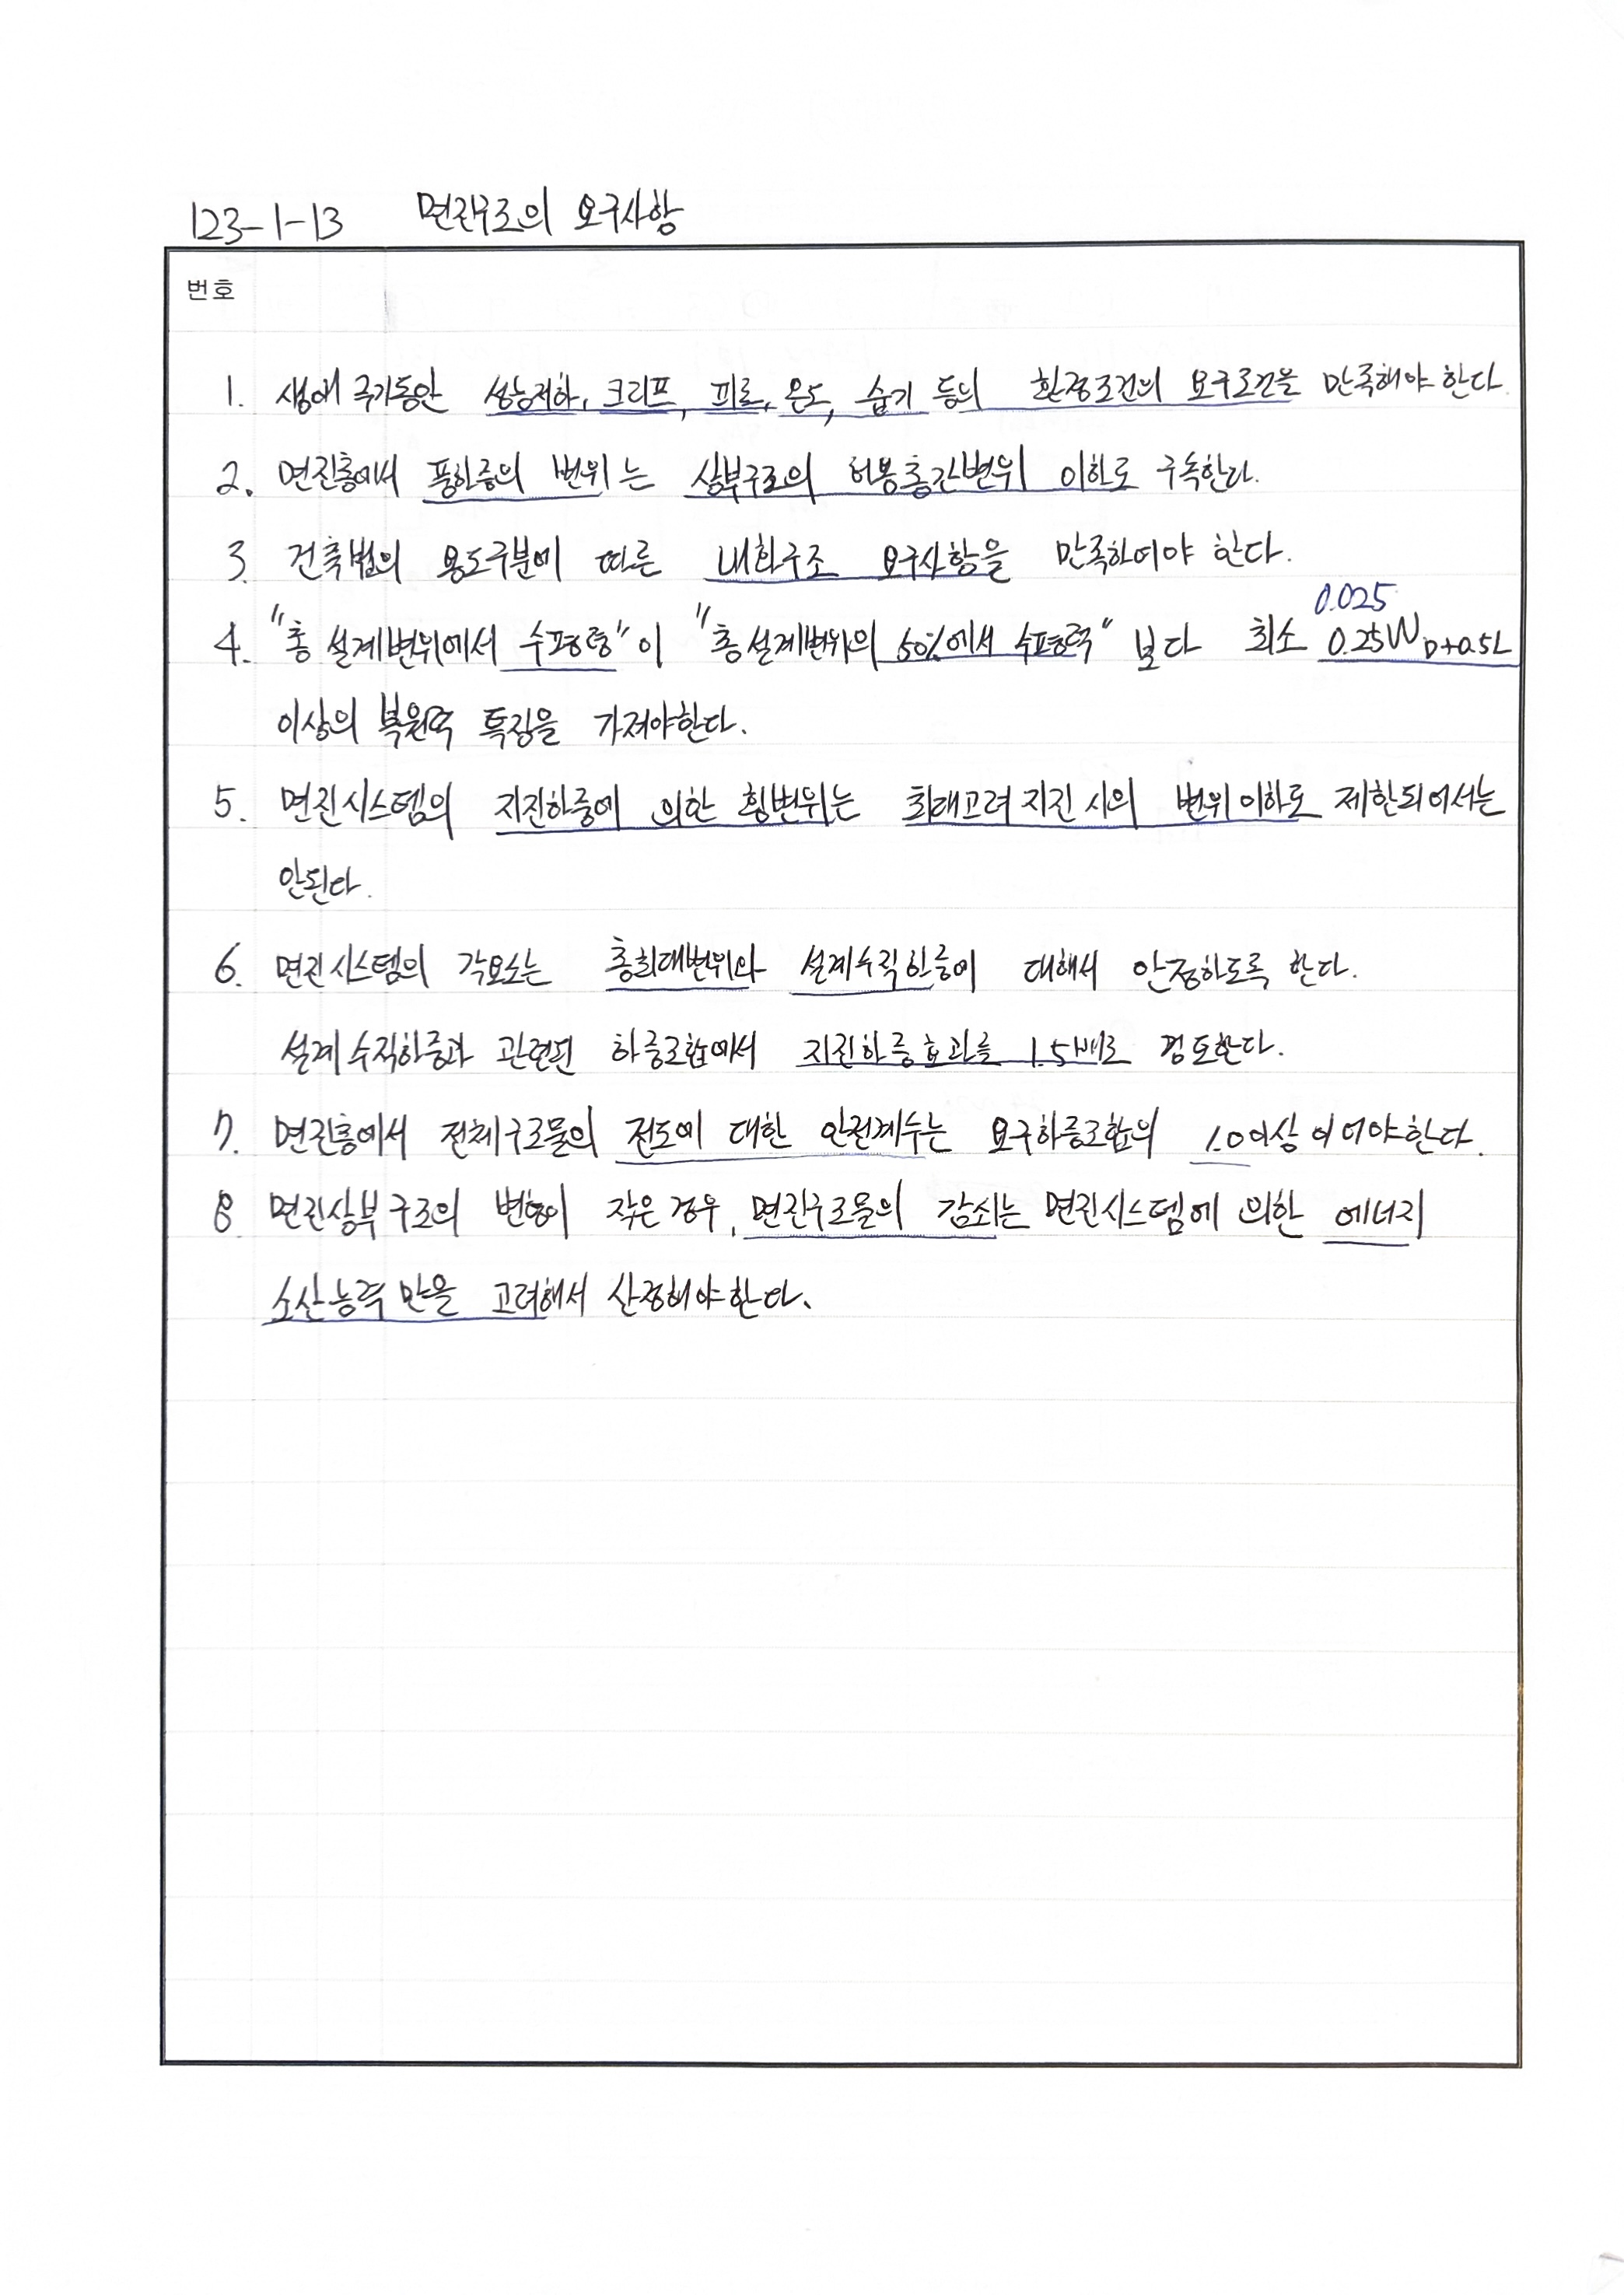 123-1-13 면진구조의 요구사항
번호
1. 생애 주기동안 성능저하, 크리프, 피로, 온도, 습기 등의 환경조건의 요구조건을 만족해야 한다.
2. 면진층에서 풍하중의 변위는 상부구조의 허용층간변위 이하로 구속한다.
3. 건축법의 용도구분에 따른 내화구조 요구사항을 만족하여야 한다.
0.025
4. "총 설계변위에서 수평력"이 "총설계변위의 50%에서 수평력" 보다 최소 0.25W D+0.5L
이상의 복원력 특징을 가져야한다.
5. 면진시스템의 지진하중에 의한 횡변위는 최대고려 지진 시의 변위 이하로 제한되어서는
안된다.
6. 면진시스템의 각요소는 총최대변위와 설계수직하중에 대해서 안정하도록 한다.
설계수직하중과 관련된 하중조합에서 지진하중효과를 1.5배로 검토한다.
7. 면진층에서 전체구조물의 전도에 대한 안전계수는 요구하중조합의 1.0이상 이어야한다.
8 면진상부구조의 변형이 작은 경우, 면진구조물의 감쇠는 면진시스템에 의한 에너지
소산능력 만을 고려해서 산정해야한다.